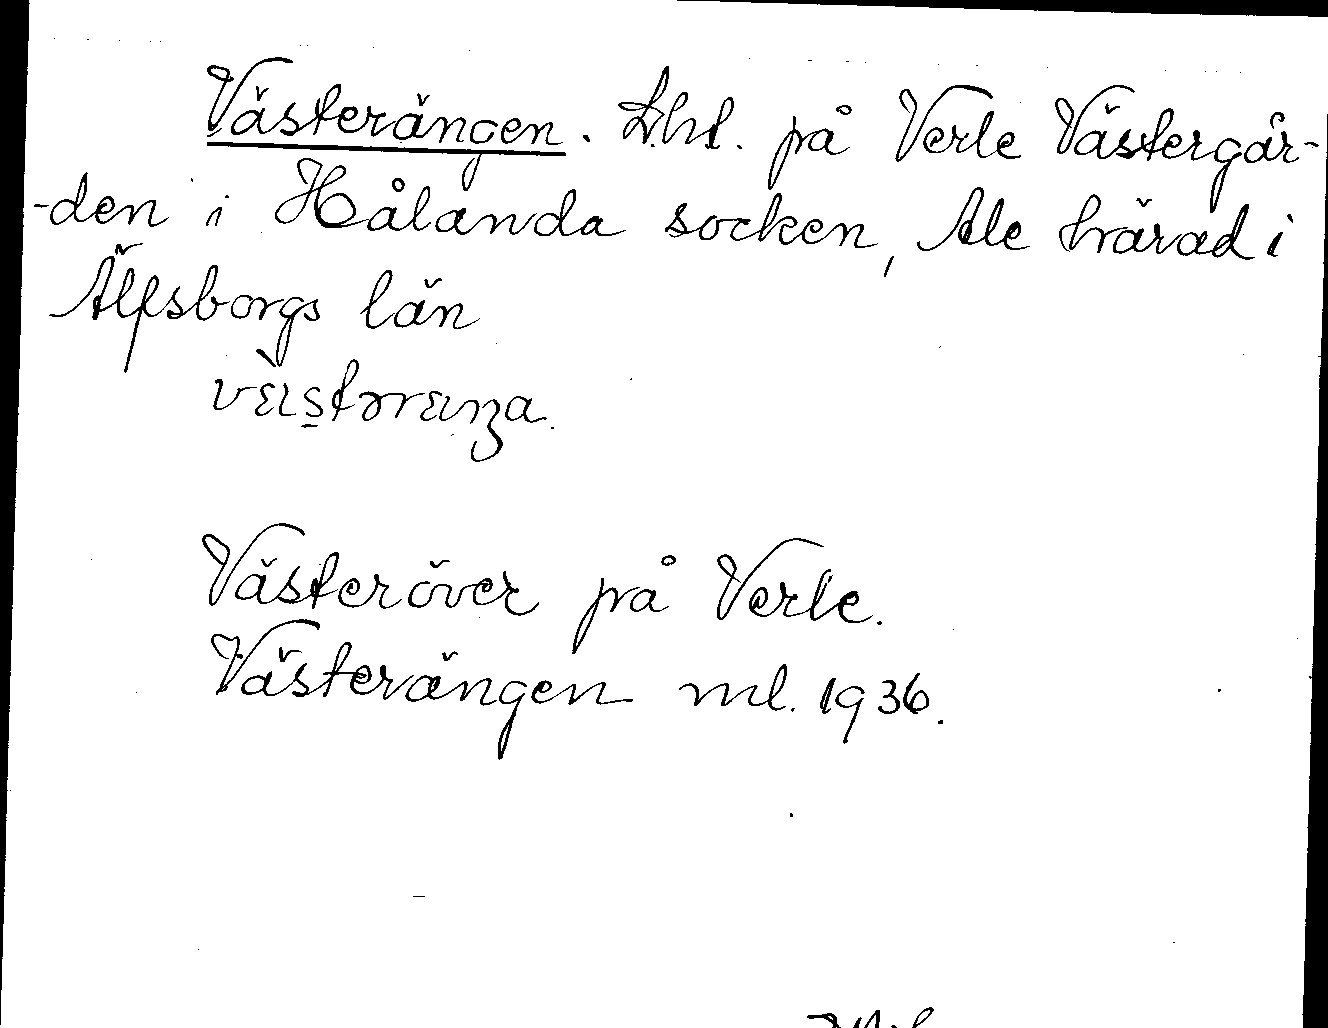 Västerängen. Lht. på Verle Västergår-
-den i Hålanda socken, Ale härad i
Älfsborgs län
Västeröver på Verle.
Västerängen ml. 1936.